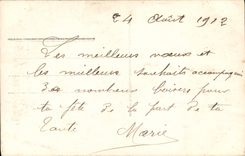 24 Août 1912
Les meilleurs vœux et
les meilleurs souhaits accompagnés
de nombreux baisers pour
ta fête de la part de ta
tante Marie